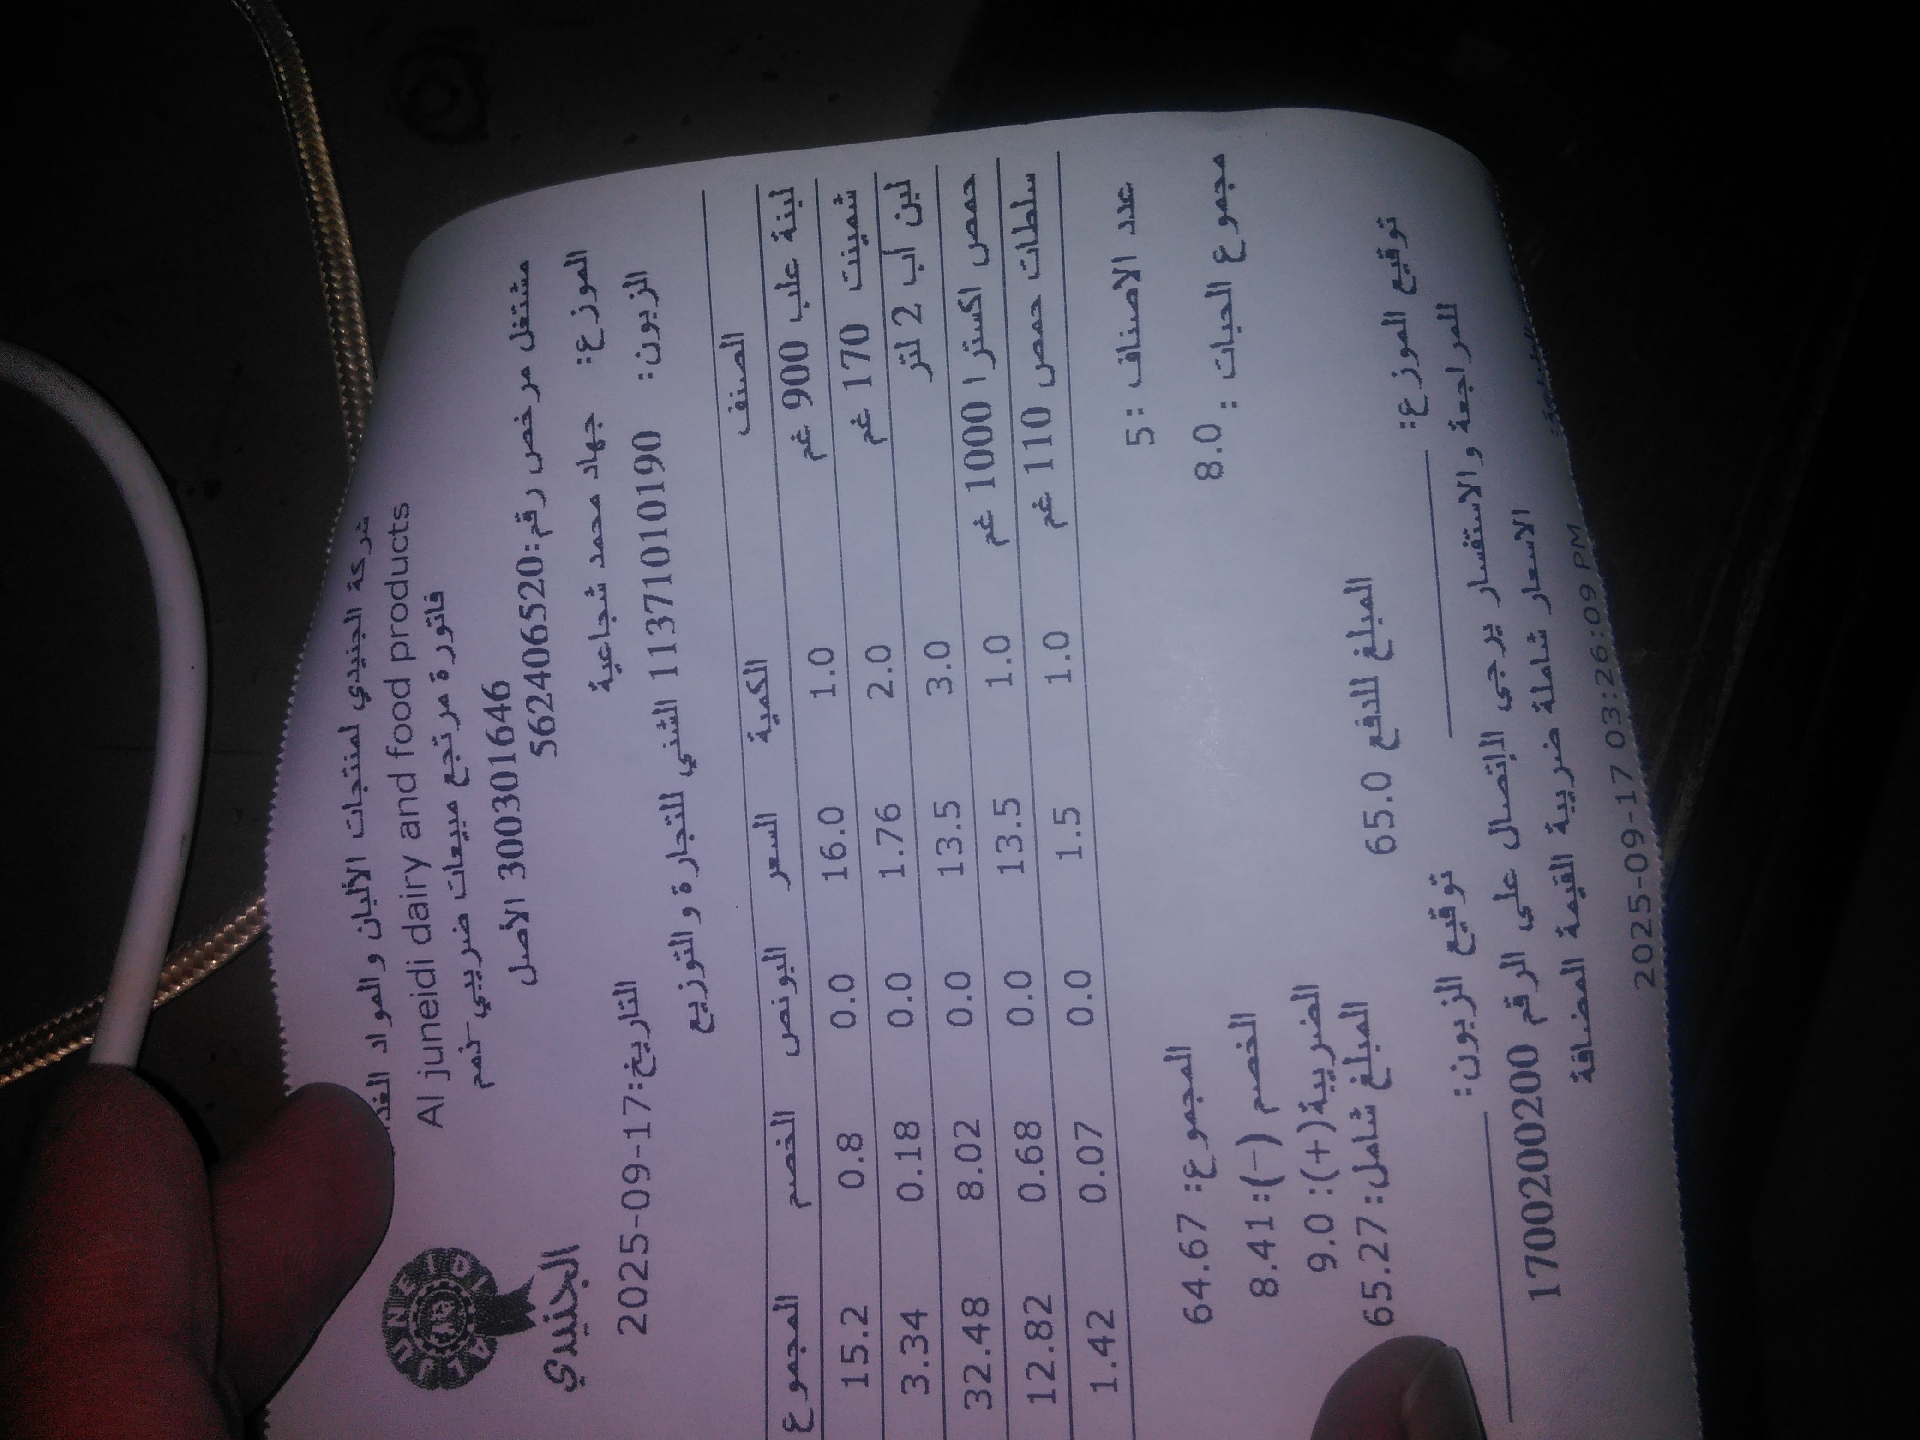 شركة الجنيدي لمنتجات الألبان والمواد
Al juneidi dairy and food products
فاتورة مرتجع مبيعات ضريبي-ذمم
300301646 الأصل
مشتغل مرخص رقم:562406520
AL JUNEIDI
الجنيدي
الموزع: جهاد محمد شجاعية
التاريخ:2025-09-17
الزبون: 1137101019 الثني للتجارة والتوزيع
الصنف الكمية السعر البونص الخصم المجموع
لبنة علب 900 غم 1.0 16.0 0.0 0.8 15.2
شمينت 170 غم 2.0 1.76 0.0 0.18 3.34
لبن أب 2 لتر 3.0 13.5 0.0 8.02 32.48
حمص اكسترا 1000 غم 1.0 13.5 0.0 0.68 12.82
سلطات حمص 110 غم 1.0 1.5 0.0 0.07 1.42
عدد الاصناف :5 المجموع: 64.67
مجموع الحبات : 8.0 الخصم (-): 8.41
الضريبة(+): 9.0
المبلغ شامل: 65.27
المبلغ للدفع 65.0
توقيع الموزع: توقيع الزبون:
للمراجعة والاستفسار يرجى الإتصال على الرقم 1700200200
الاسعار شاملة ضريبة القيمة المضافة
2025-09-17 03:26:09 PM